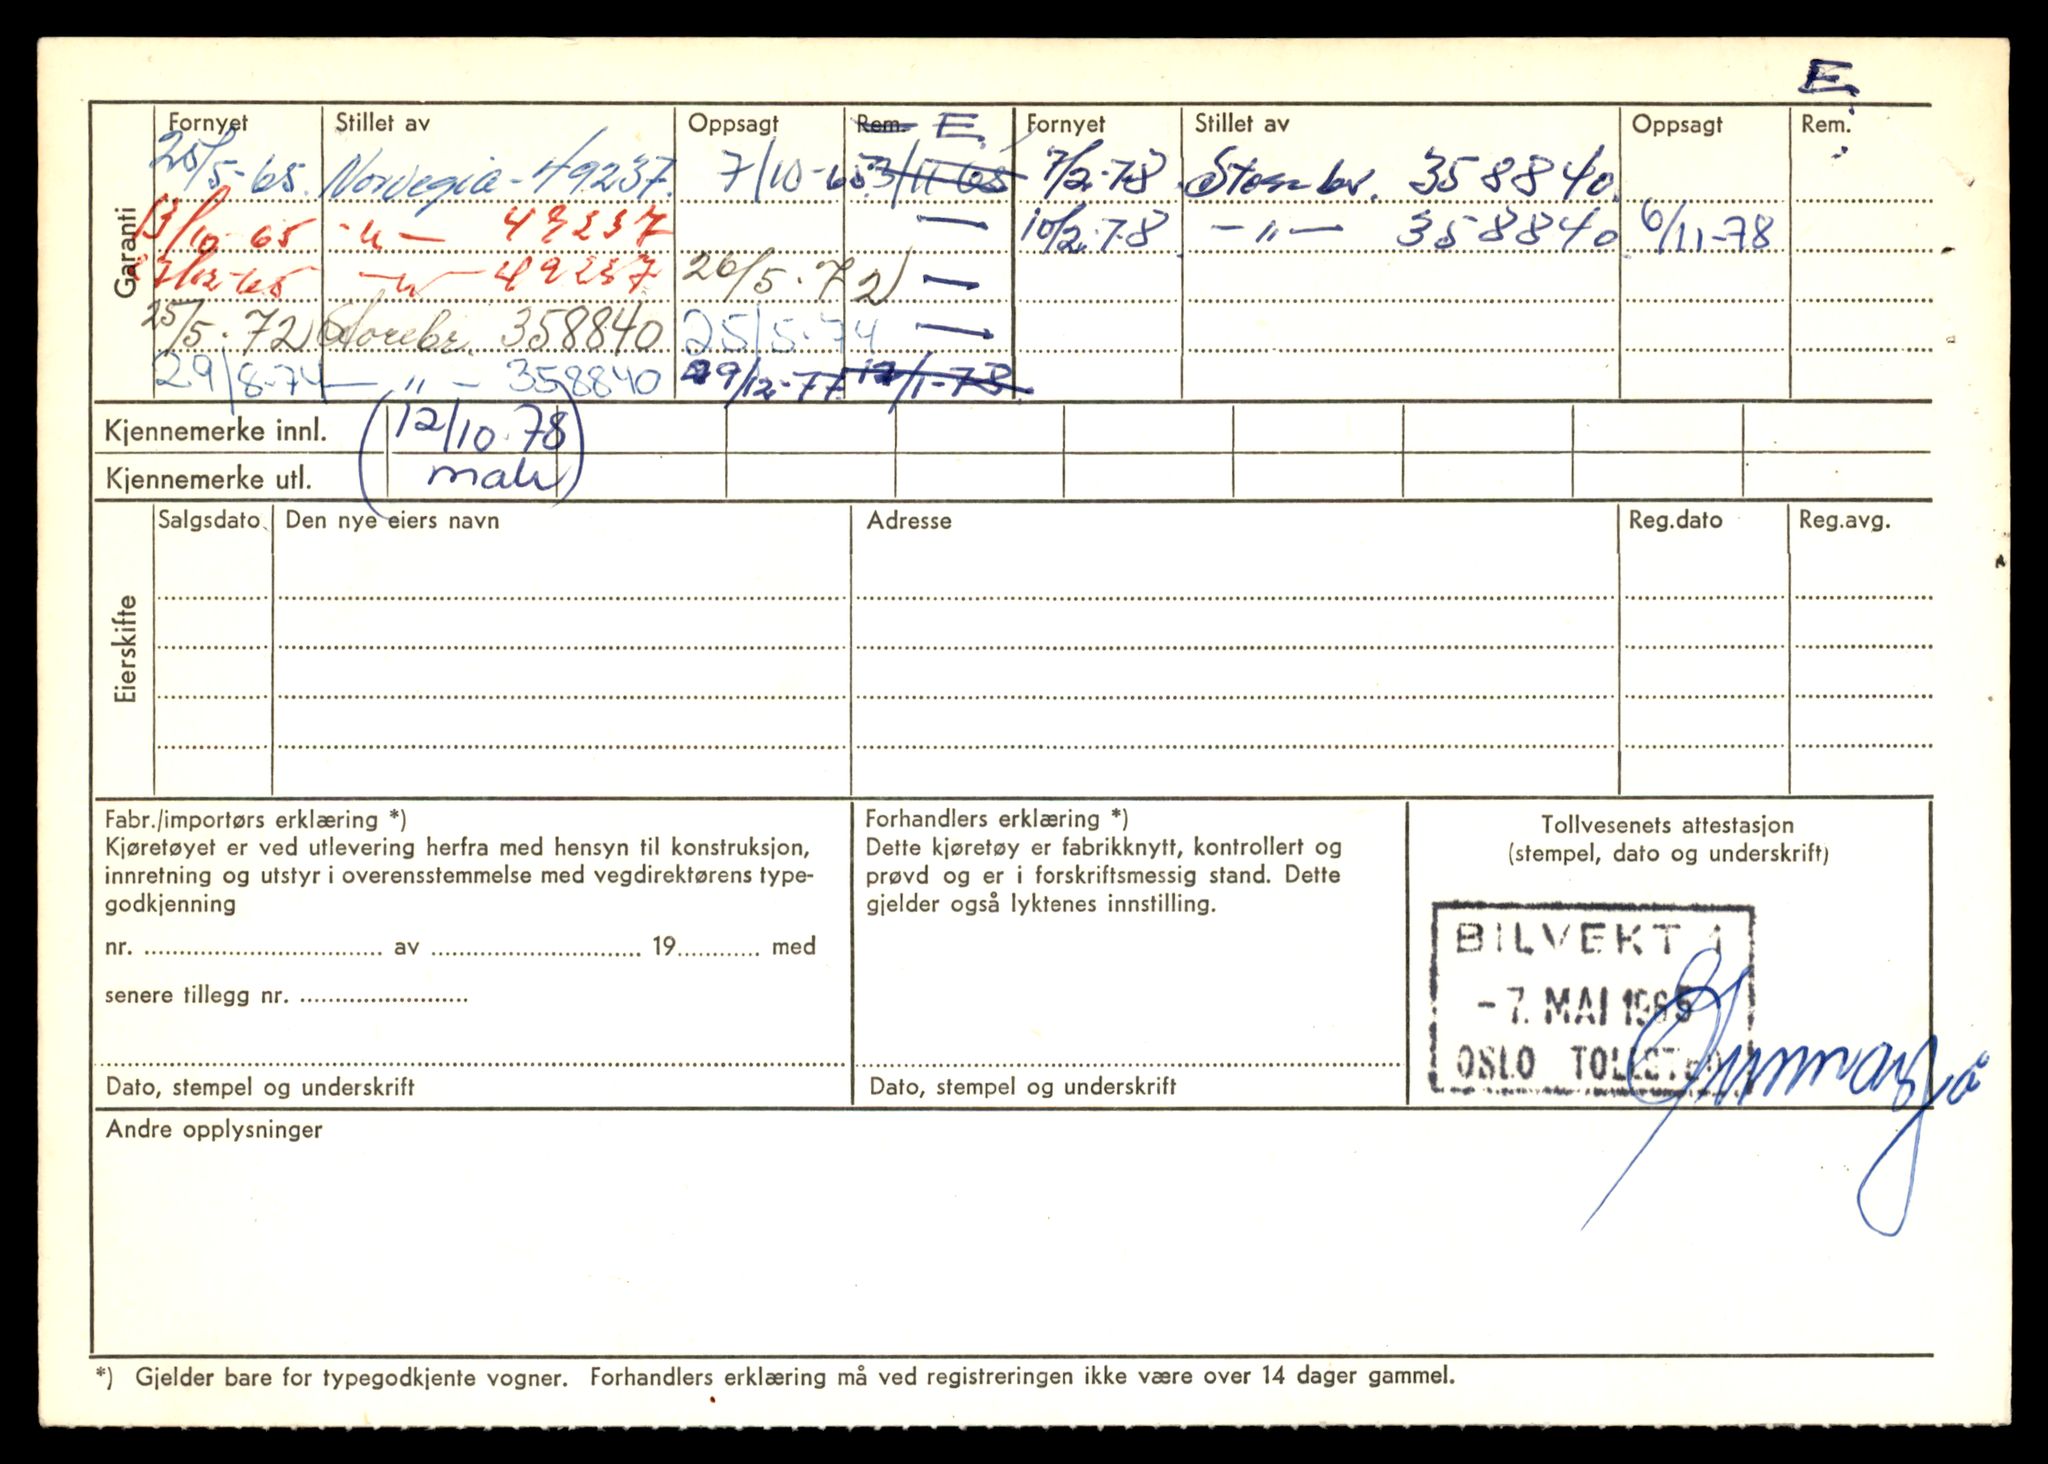 E.
Garanti
Fornyet Stillet av Oppsagt Rem. E. Fornyet Stillet av Oppsagt Rem.
25/5-65. Norvegia - 49237. 7/10-65 3/11 65 7/2.78 Storebr. 358840
13/10-65 -"- 49237 — 10/2.78 -"- 358840 6/11-78
17/12-65 -"- 49237 26/5.72 —
25/5.72 Storebr. 358840 25/5-74 —
29/8-74 — " - 358840 29/12-77 12/1-78
Kjennemerke innl. (12/10.78
Kjennemerke utl. mak)
Eierskifte
Salgsdato Den nye eiers navn Adresse Reg.dato Reg.avg.
Fabr./importørs erklæring *)
Kjøretøyet er ved utlevering herfra med hensyn til konstruksjon,
innretning og utstyr i overensstemmelse med vegdirektørens type-
godkjenning
nr. .......... av .......... 19.......... med
senere tillegg nr. ..........
Dato, stempel og underskrift
Forhandlers erklæring *)
Dette kjøretøy er fabrikknytt, kontrollert og
prøvd og er i forskriftsmessig stand. Dette
gjelder også lyktenes innstilling.
Dato, stempel og underskrift
Tollvesenets attestasjon
(stempel, dato og underskrift)
BILVEKT 1
-7. MAI 1965
OSLO TOLLSTED
Andre opplysninger
*) Gjelder bare for typegodkjente vogner. Forhandlers erklæring må ved registreringen ikke være over 14 dager gammel.